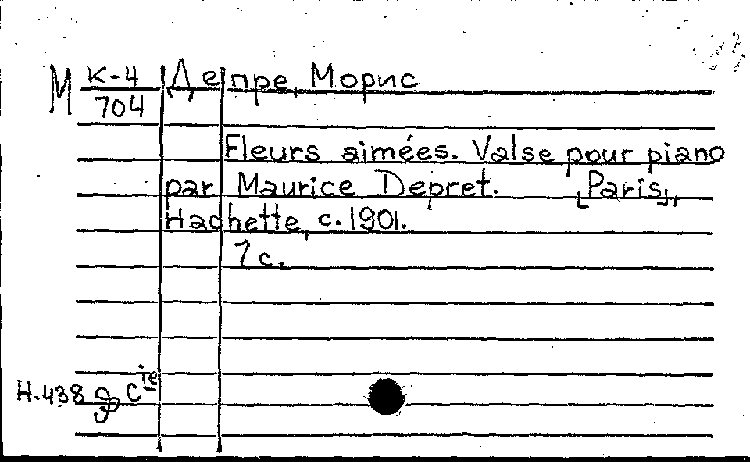 М К-4 Депре, Морис
704
Fleurs aimées. Valse pour piano
par Maurice Depret. [Paris],
Hachette, c. 1901.
7 c.
H.438 & Cie